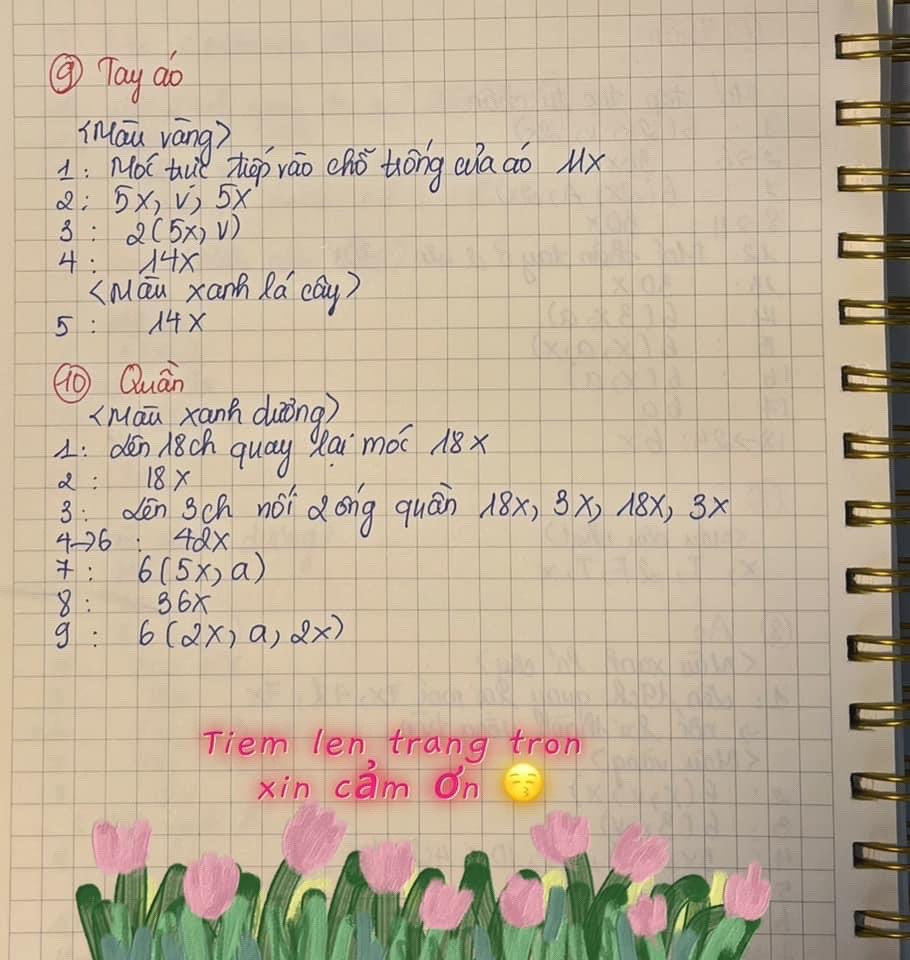 ⑨ Tay áo
<Màu vàng>
1: Móc trực tiếp vào chỗ trống của áo 11x
2: 5x, v, 5x
3: 2(5x, v)
4: 14x
<Màu xanh lá cây>
5: 14x
⑩ Quần
<Màu xanh dương>
1: lên 18ch quay lại móc 18x
2: 18x
3: lên 3ch nối 2 ống quần 18x, 3x, 18x, 3x
4→6: 42x
7: 6(5x, a)
8: 36x
9: 6(2x, a, 2x)
Tiem len trang tron
xin cảm ơn 😚